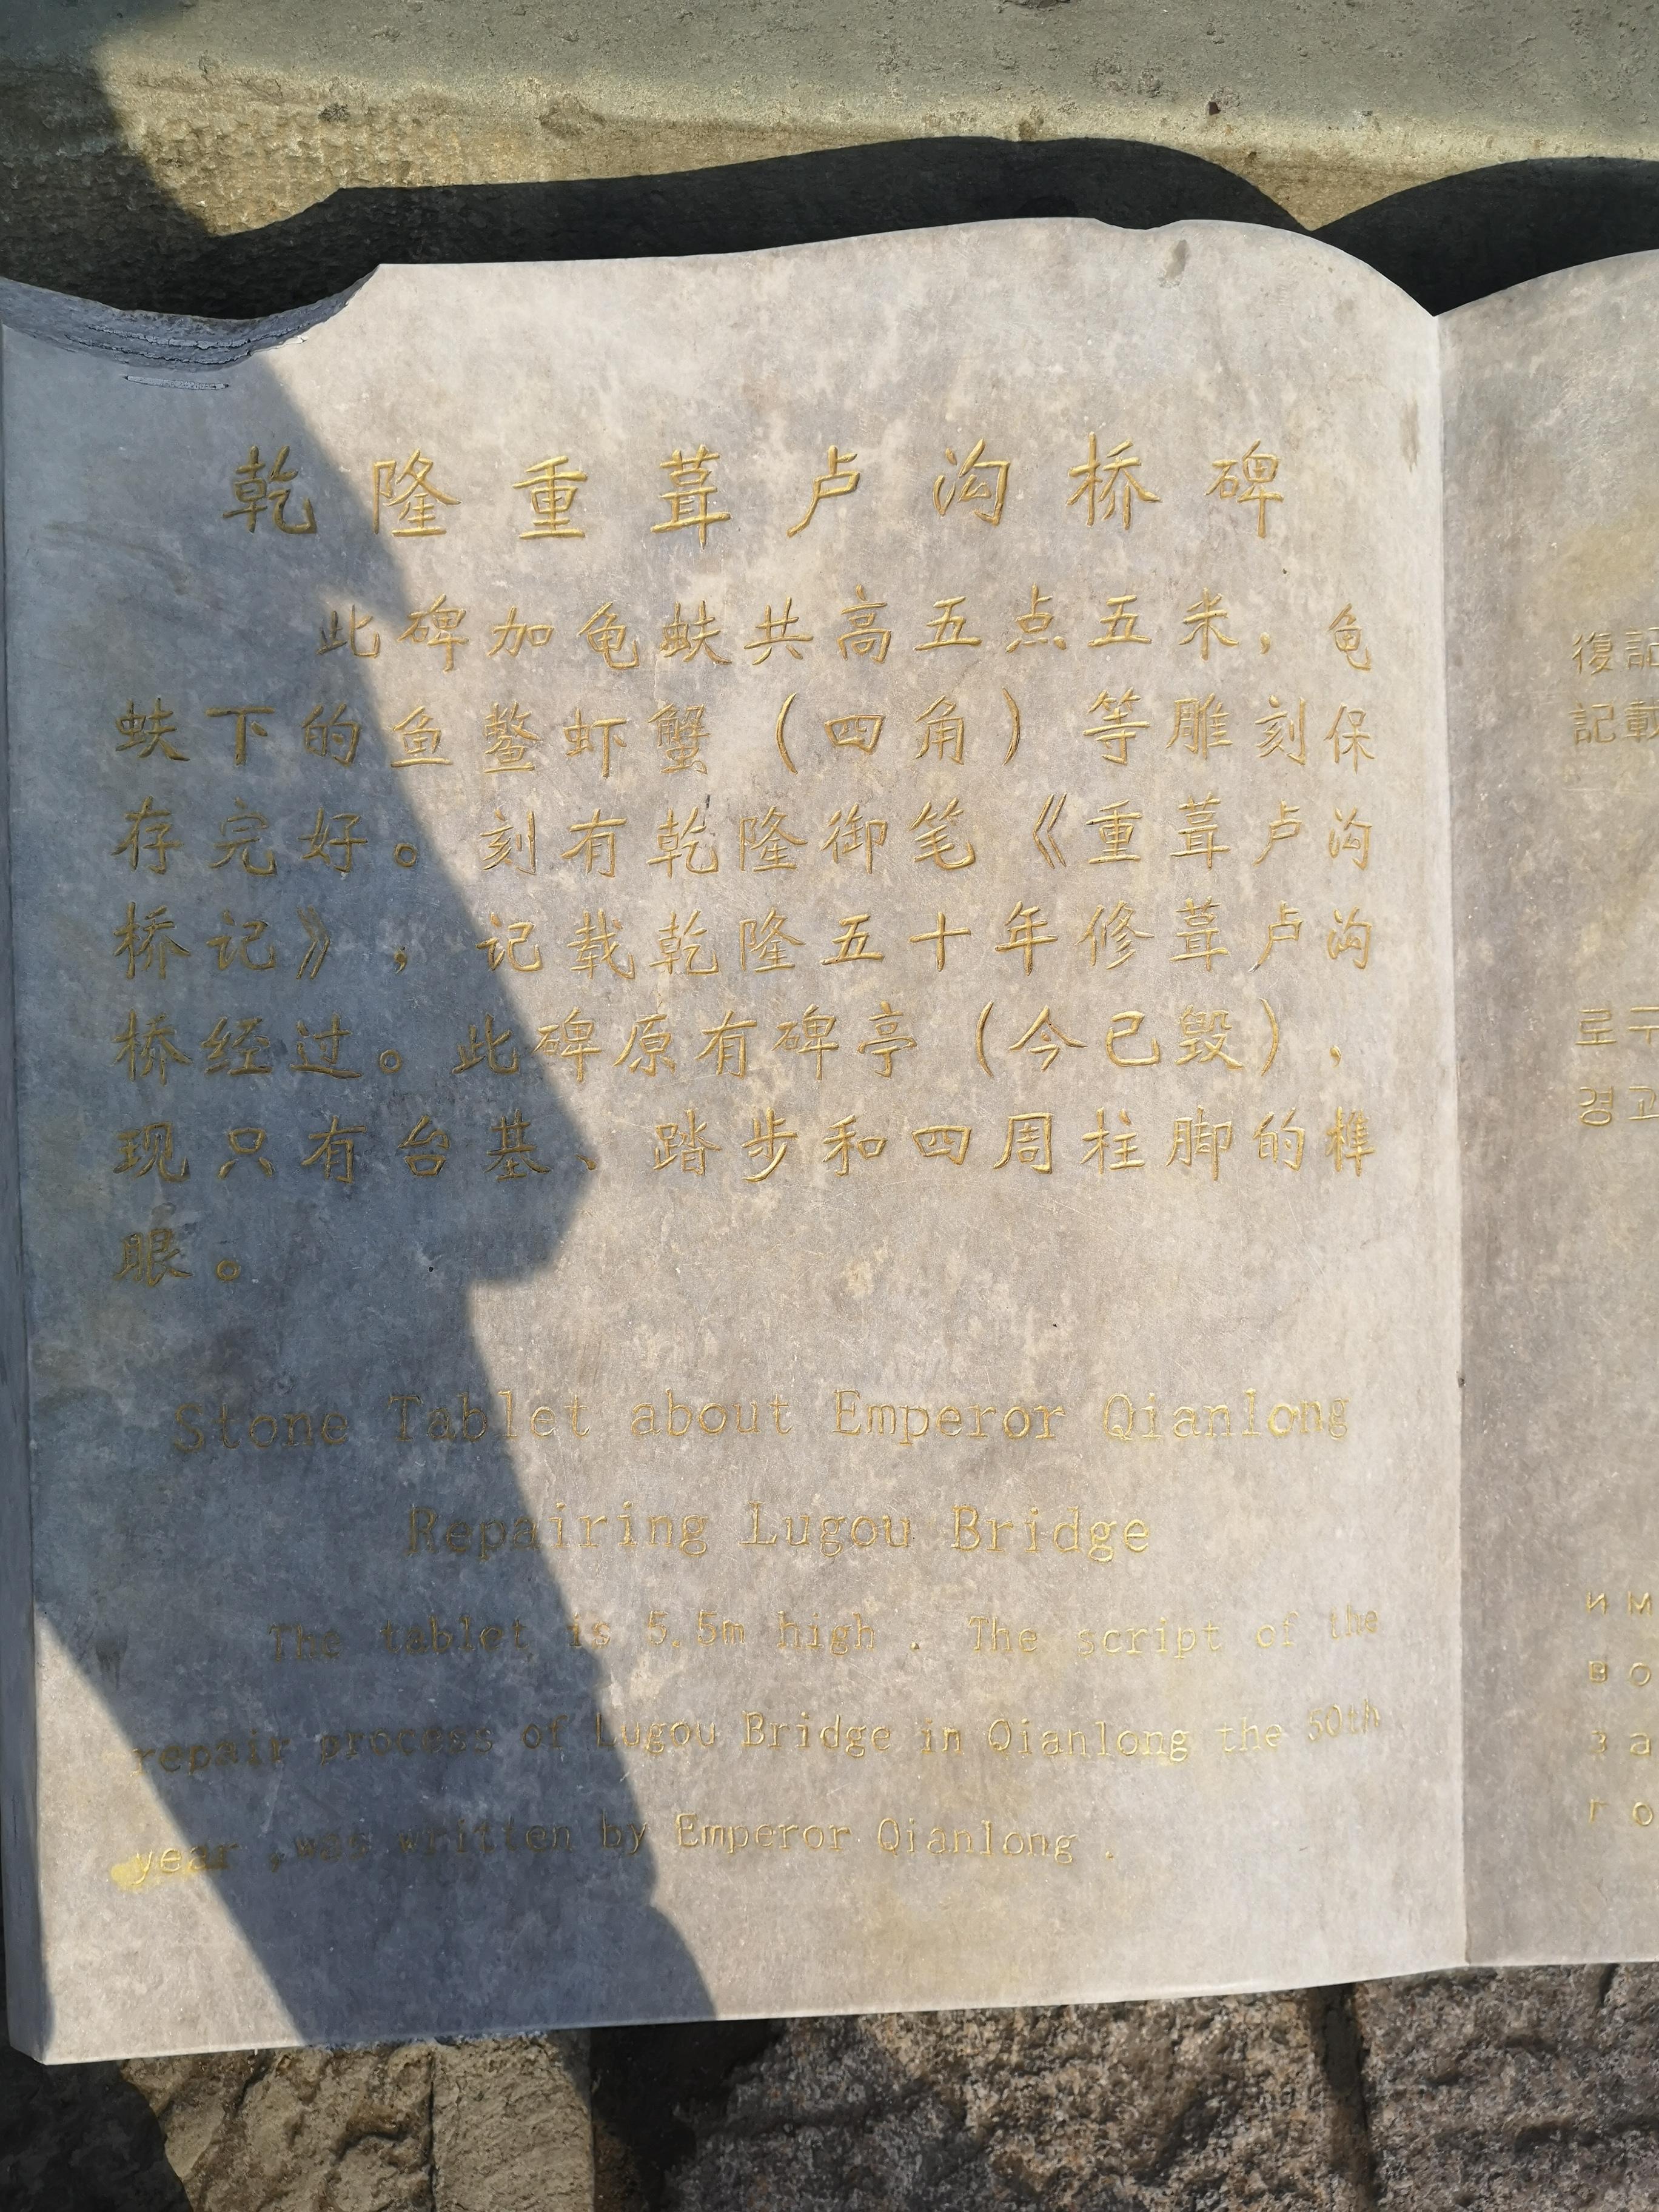 乾隆重葺卢沟桥碑
此碑加龟蚨共高五点五米，龟
蚨下的鱼鳌虾蟹（四角）等雕刻保
存完好。刻有乾隆御笔《重葺卢沟
桥记》，记载乾隆五十年修葺卢沟
桥经过。此碑原有碑亭（今已毁），
现只有台基、踏步和四周柱脚的榫
眼。
Stone Tablet about Emperor Qianlong
Repairing Lugou Bridge
The tablet is 5.5m high . The script of the
repair process of Lugou Bridge in Qianlong the 50th
year ,was written by Emperor Qianlong .
復記
記載
로구
경고
им
во
за
го